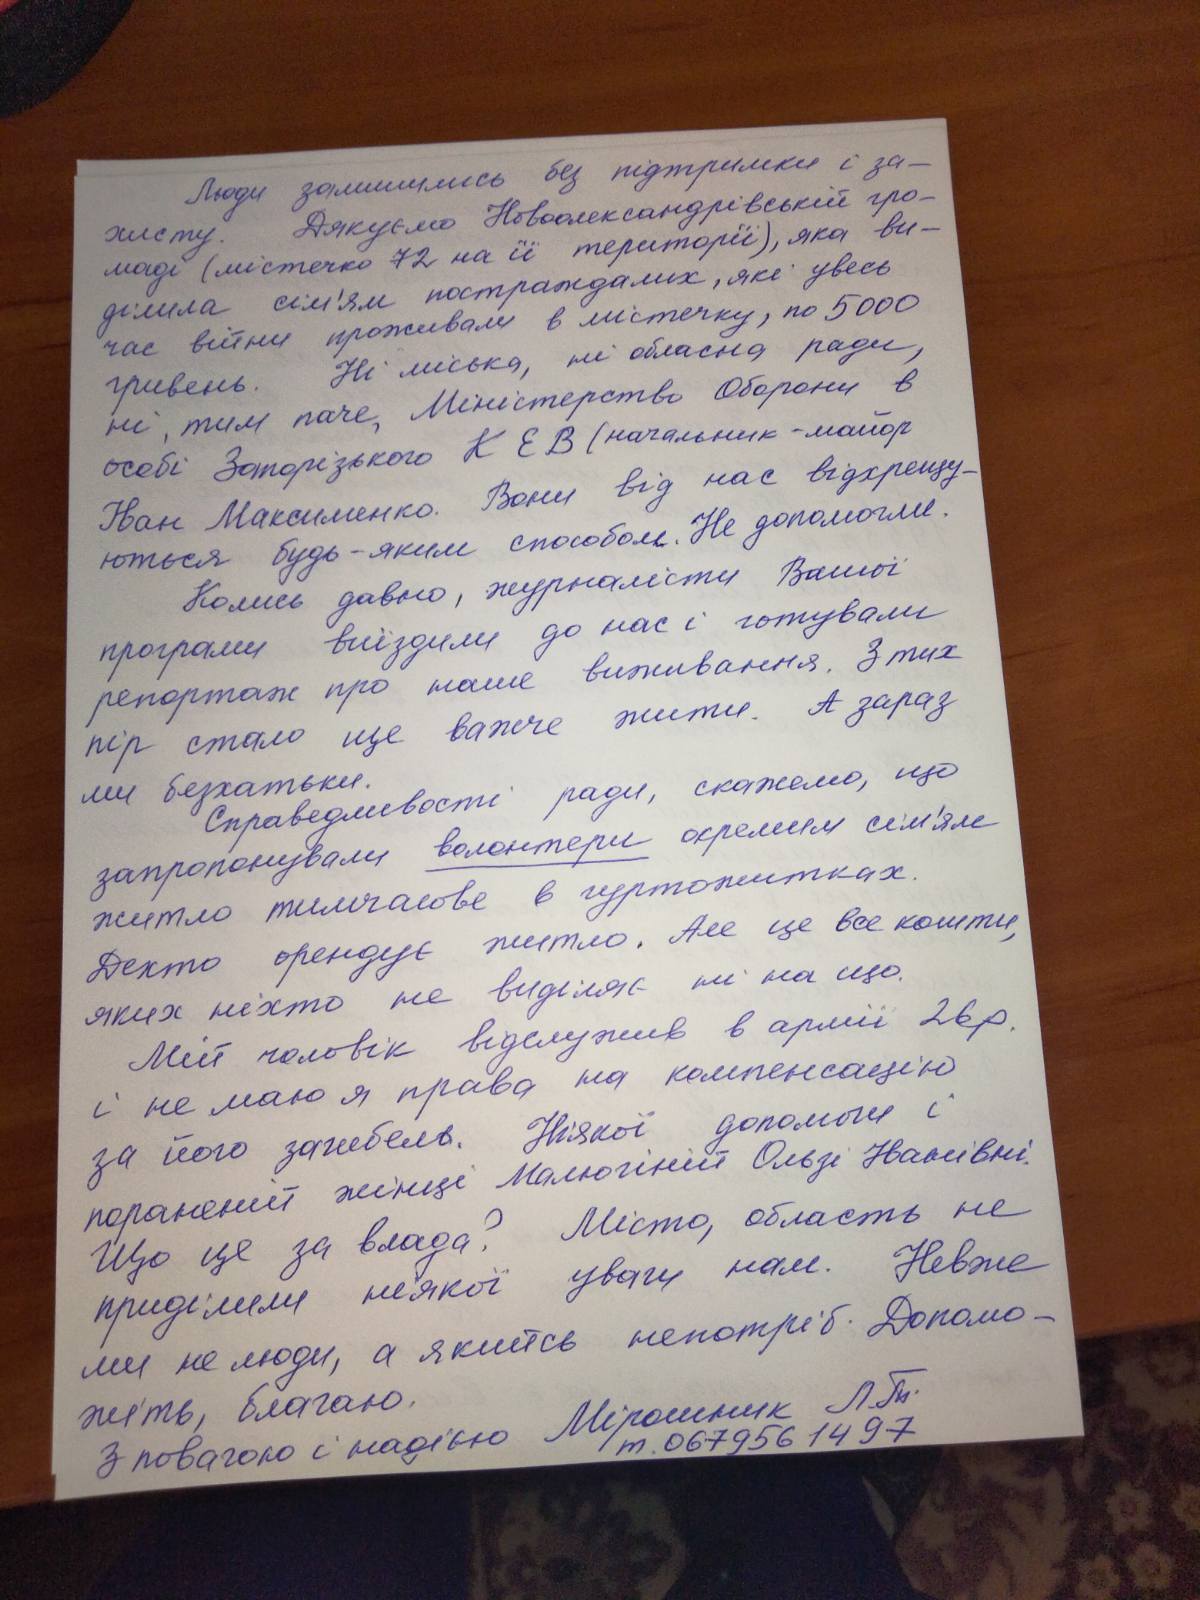 Люди залишились без підтримки і за-
хисту. Дякуємо Новоолександрівській гро-
маді (містечко 72 на її території), яка ви-
ділила сім'ям постраждалих, які увесь
час війни проживали в містечку, по 5000
гривень. Ні міська, ні обласна ради,
ні, тим паче, Міністерство Оборони в
особі Запорізького КЕВ (начальник - майор
Іван Максименко. Вони від нас відхрещу-
ються будь-яким способом. Не допомогли.
Колись давно, журналісти Вашої
програми виїздили до нас і готували
репортаж про наше виживання. З тих
пір стало ще важче жити. А зараз
ми безхатьки.
Справедливості ради, скажемо, що
запропонували волонтери окремим сім'ям
житло тимчасове в гуртожитках.
Дехто орендує житло. Але це все кошти,
яких ніхто не виділяє ні на що.
Мій чоловік відслужив в армії 26р.
і не маю я права на компенсацію
за його загибель. Ніякої допомоги і
пораненій жінці Малюгіній Ользі Іванівні.
Що це за влада? Місто, область не
приділили ніякої уваги нам. Невже
ми не люди, а якийсь непотріб. Допомо-
жіть, благаю.
З повагою і надією Мірошник Л.
т. 067 956 14 97